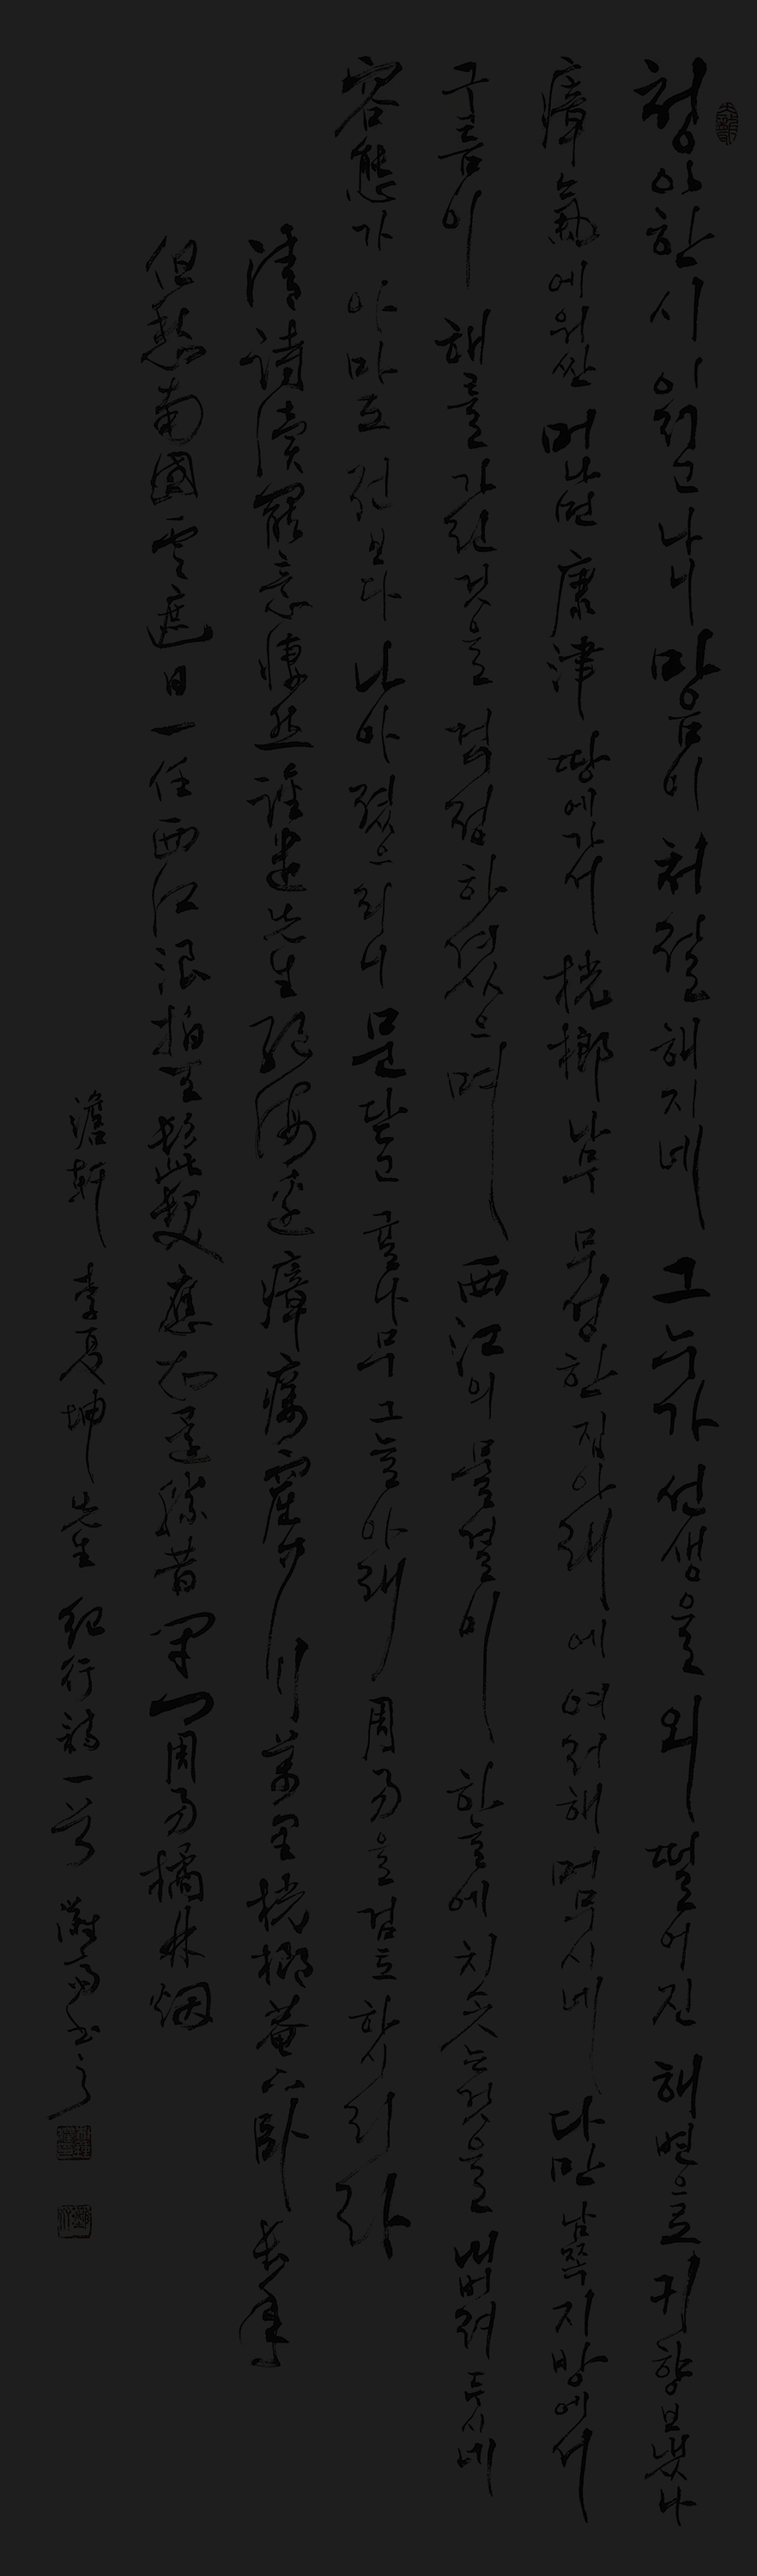 청아한 시 읽고 나니 마음이 처절해지네 그 누가 선생을 외떨어진 해변으로 귀향보냈나
瘴氣에 워싼 머나먼 康津 땅에 가서 桄榔나무 무성한 집 아래에 여러해 머무시네 다만 남쪽지방에서
구름이 해를 가린 것을 걱정하였으며 西江의 물결이 하늘에 치솟는 것을 내버려 두시네
容態가 아마도 전보다 나아졌으리니 문 닫고 귤나무 그늘 아래 周易을 검토하시리라
清詩讀罷意悽然 誰遣先生絶海邊 瘴癘窟中行萬里 桄榔菴下臥長年
但愁南國雲遮日 一任西江浪拍天 髭髮應知還勝昔 閉門周易橘林烟
澹軒 李夏坤 先生 紀行詩一首 書之